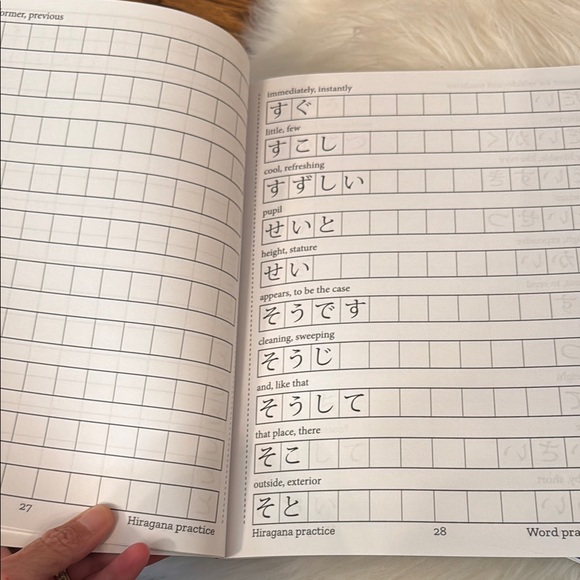 ormer, previous
27
Hiragana practice
immediately, instantly
すぐ
little, few
すこし
cool, refreshing
すずしい
pupil
せいと
height, stature
せい
appears, to be the case
そうです
cleaning, sweeping
そうじ
and, like that
そうして
that place, there
そこ
outside, exterior
そと
Hiragana practice
28
Word pra